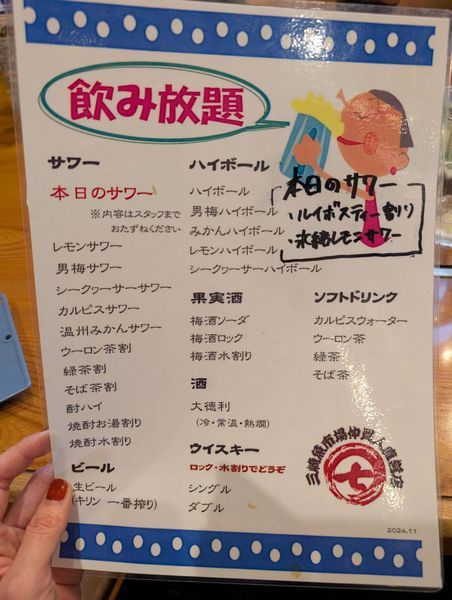 飲み放題
サワー
本日のサワー
※内容はスタッフまで
おたずねください
レモンサワー
男梅サワー
シークヮーサーサワー
カルピスサワー
温州みかんサワー
ウーロン茶割
緑茶割
そば茶割
酎ハイ
焼酎お湯割り
焼酎水割り
ビール
生ビール
(キリン 一番搾り)
ハイボール
ハイボール
男梅ハイボール
みかんハイボール
レモンハイボール
シークヮーサーハイボール
本日のサワー
・ルイボスティー割り
・氷結レモンサワー
果実酒
梅酒ソーダ
梅酒ロック
梅酒水割り
酒
大徳利
(冷・常温・熱燗)
ウイスキー
ロック・水割りでどうぞ
シングル
ダブル
ソフトドリンク
カルピスウォーター
ウーロン茶
緑茶
そば茶
三崎魚市場仲買人直営店
七
2024.11